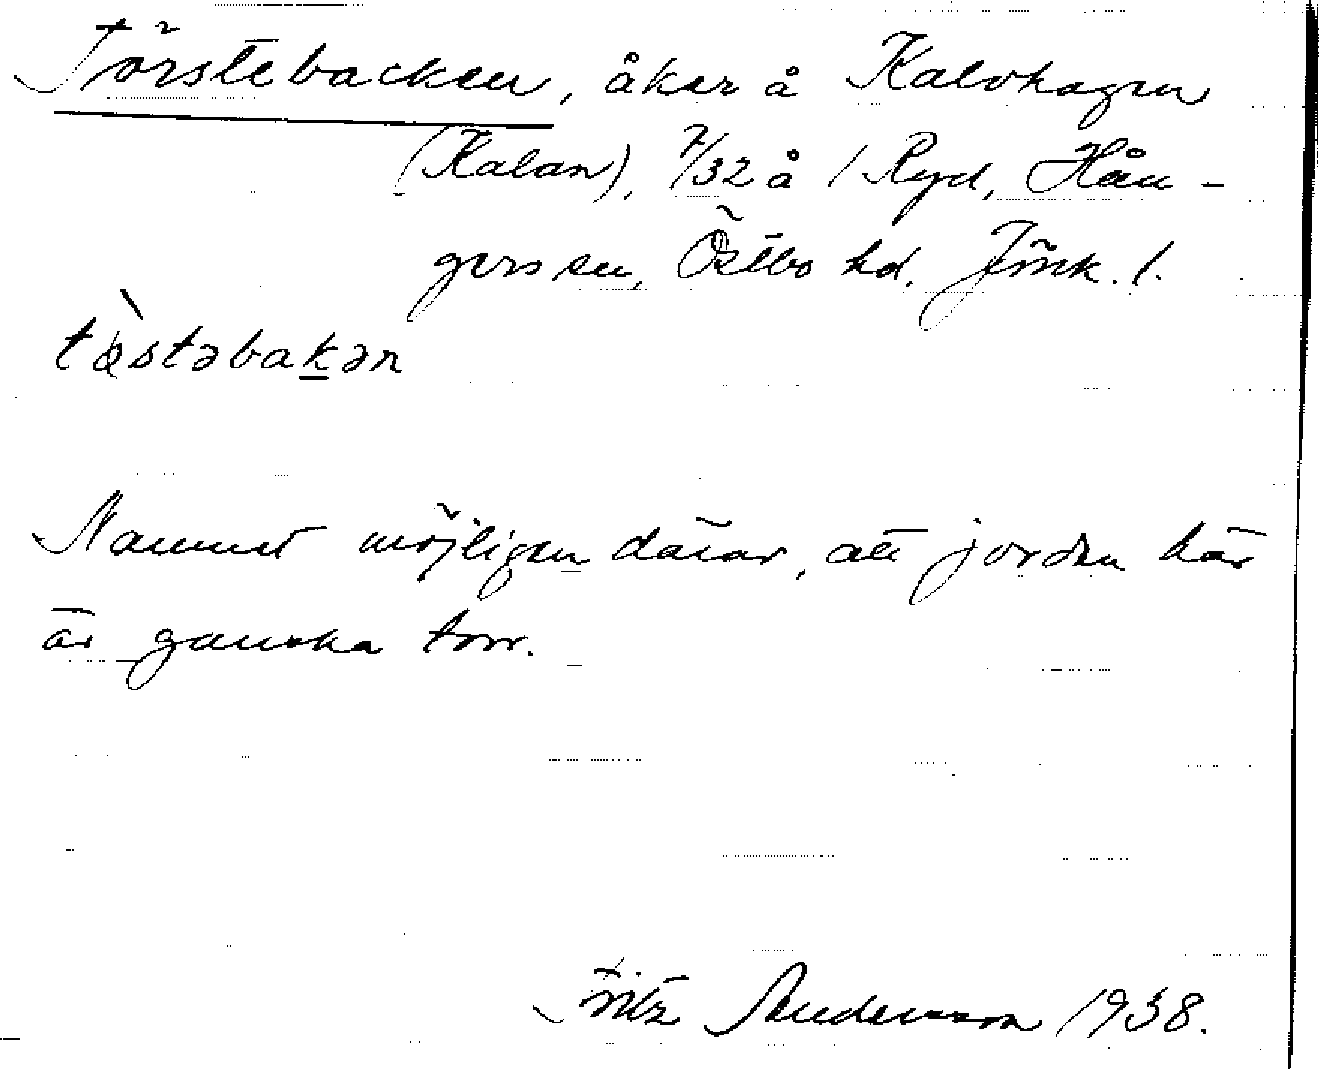 Törstebacken, åker å Kalvhagen
(Kalan), 7/32 å 1 Ryd, Hån-
gers sn, Östbo hd. Jönk. l.
tòstəbakən
Namnet möjligen därav, att jorden här
är ganska torr.
Fritz Andersson 1938.